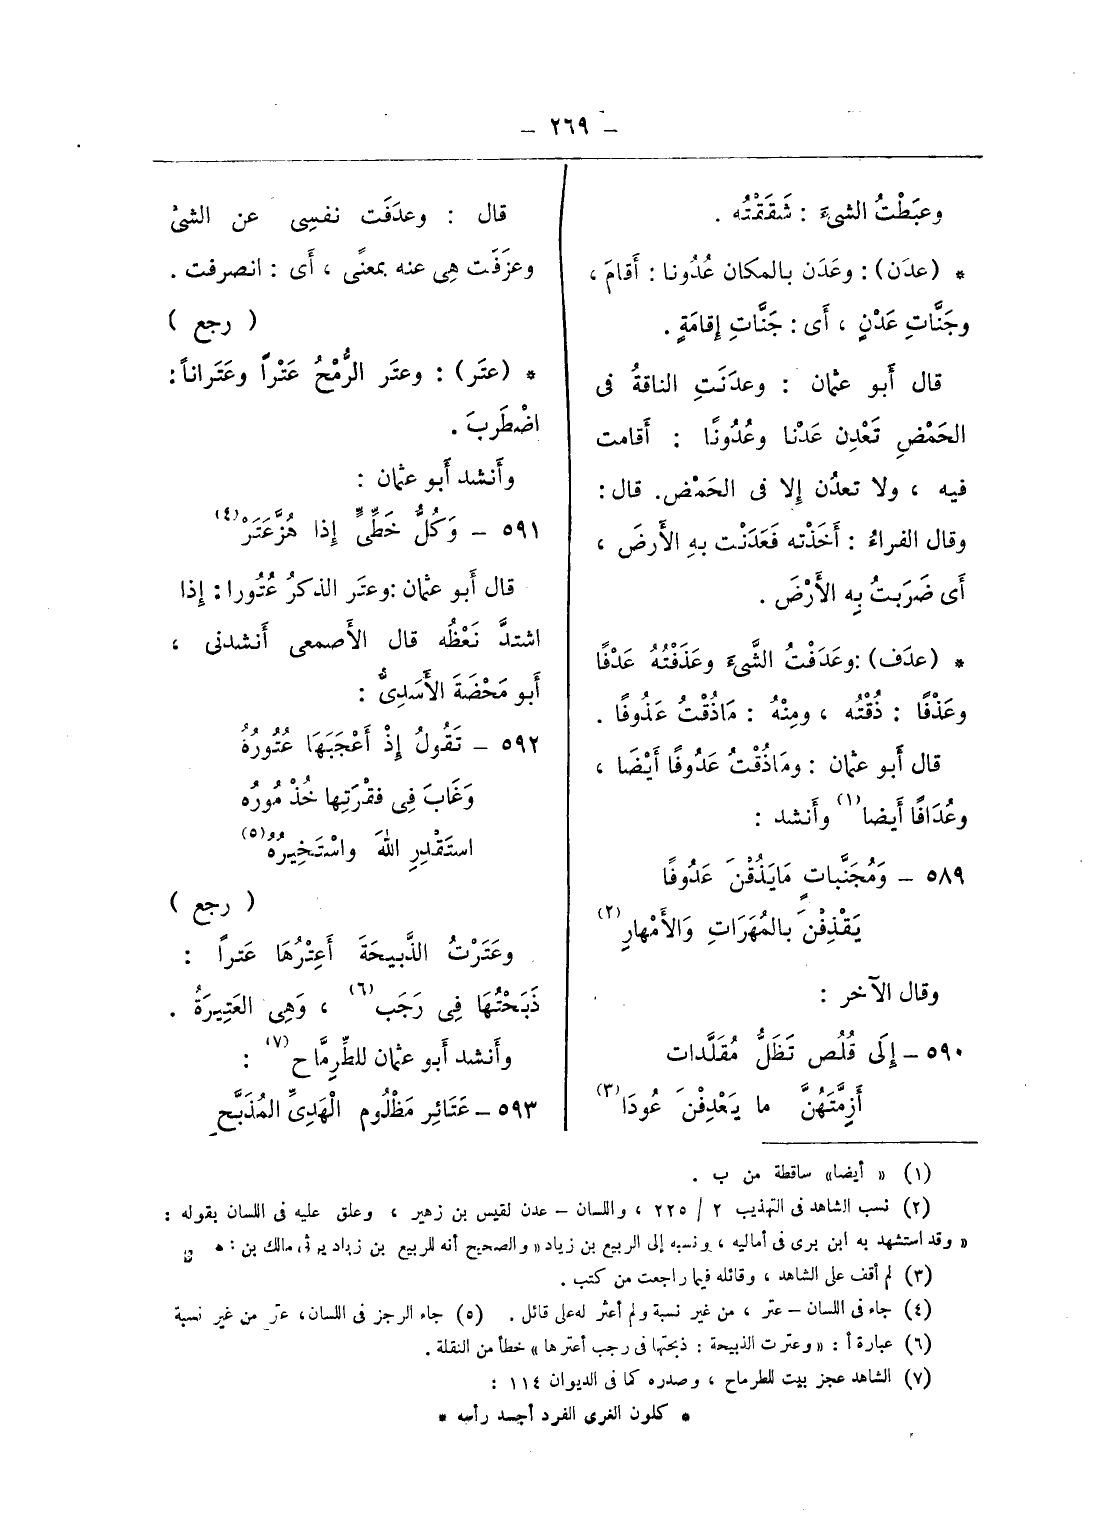 – ٢٦٩ –
وعبَطْتُ الشىءَ : شَقَقْتُه .
* (عدَن) : وعَدَن بالمكان عُدُونا : أَقامَ ،
وجَنَّاتِ عَدْنٍ ، أَى : جَنَّاتِ إِقامَةٍ .
قال أَبو عثمان : وعدَنَتِ الناقةُ فى
الحَمْضِ تَعْدِن عَدْنا وعُدُونًا : أَقامت
فيه ، ولا تعدُن إلا فى الحَمْض. قال :
وقال الفراءُ : أَخَذْته فَعَدَنْت بهِ الأَرضَ ،
أَى ضَرَبتُ بِه الأَرْضَ .
* (عدَف) :وعَدَفْتُ الشَّىءَ وعَذَفْتُهُ عَدْفًا
وعَذْفًا : ذُقْتُه ، ومِنْهُ : مَاذُقْتُ عَذُوفًا .
قال أَبو عثمان : ومَاذُقْتُ عَدُوفًا أَيْضَا ،
وعُدَافًا أَيضا(١) وأَنشد :
٥٨٩ – وَمُجَنَّباتٍ مَايَذُقْنَ عَدُوفًا
يَقْذِفْنَ بالمُهَرَاتِ وَالأَمْهارِ(٢)
وقال الآخر :
٥٩٠ – إِلَى قُلُص تَظَلُّ مُقَلَّدات
أَزِمَّتَهُنَّ ما يَعْدِفْنَ عُودَا(٣)
قال : وعدَفَت نفسِى عن الشىْ
وعزَفَت هِى عنه بمعنًى ، أَى : انصرفت .
( رجع )
* (عتَر) : وعتَر الرُّمْحُ عَتْراً وعَتَراناً :
اضْطَربَ .
وأَنشد أَبو عثمان :
٥٩١ – وَكُلُّ خَطِّىٍّ إِذا هُزَّعَتَرْ(٤)
قال أَبو عثمان :وعتَر الذكرُ عُتُورا : إِذا
اشتدَّ نَعْظُه قال الأَصمعى أَنشدنى ،
أَبو مَحْضَةَ الأَسَدِىُّ :
٥٩٢ – تَقُولُ إِذْ أَعْجَبَهَا عُتُورُهُ
وَغَابَ فِى فقْرَتِها جُذْمُورُه
استَقْدِرِ اللهَ واسْتَخِيرُهُ(٥)
( رجع )
وعَتَرْتُ الذَّبيحَةَ أَعتِرُهَا عَتراً :
ذَبَحْتُهَا فِى رَجَب(٦) ، وَهِى العَتِيرَةُ .
وأَنشد أَبو عثمان للطِّرِمَّاح(٧) :
٥٩٣ – عَتَائِر مَظْلُوم الْهَدِىِّ المُذَبَّحِ
(١) « أيضا» ساقطة من ب .
(٢) نسب الشاهد فى التهذيب ٢ / ٢٢٥ ، واللسان – عدن لقيس بن زهير ، وعلق عليه فى اللسان بقوله :
« وقد استشهد به ابن برى فى أماليه ، ونسبه إلى الربيع بن زياد« والصحيح أنه للربيع بن زياد يرثى مالك بن
(٣) لم أقف على الشاهد ، وقائله فيما راجعت من كتب .
(٤) جاء فى اللسان – عتر ، من غير نسبة ولم أعثر له على قائل . (٥) جاء الرجز فى اللسان، عتر من غير نسبة
(٦) عبارة أ : « وعترت الذبيحة : ذبحتها فى رجب أعترها » خطأ من النقلة .
(٧) الشاهد عجز بيت للطرماح ، وصدره كما فى الديوان ١١٤ :
* كلون الغرى الفرد أجسد رأسه *